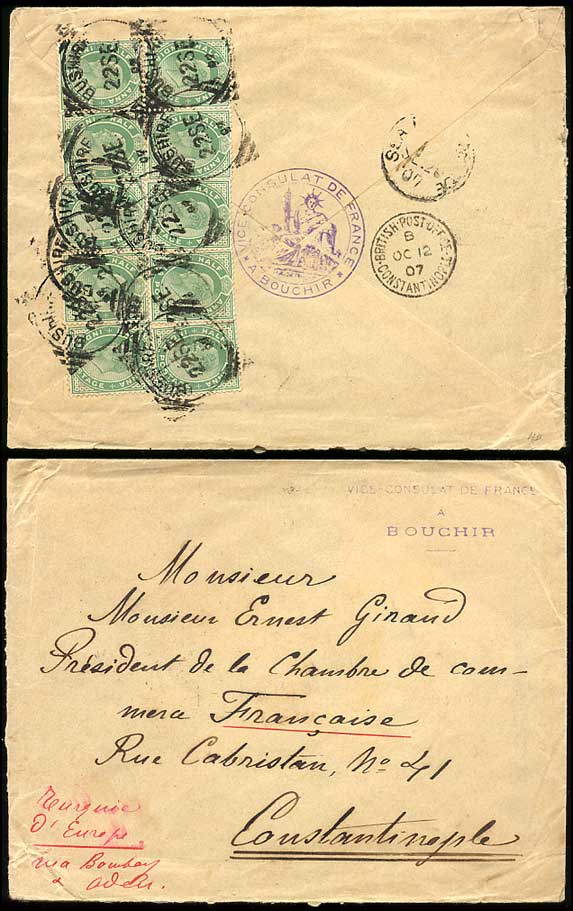 BUSHIRE
22SE
07
HALF ANNA
INDIA POSTAGE
VICE-CONSULAT DE FRANCE
* A BOUCHIR *
BRITISH·POST·OFFICE
B
OC 12
07
CONSTANTINOPLE
VICE-CONSULAT DE FRANCE
A
BOUCHIR
Monsieur
Monsieur Ernest Giraud
Président de la Chambre de com-
merce Française
Rue Cabristan, No 41
Constantinople
Turquie
d'Europe
via Bombay
& Aden.